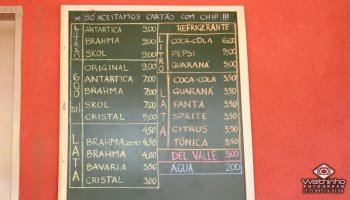 * SÓ ACEITAMOS CARTÃO COM CHIP !!!
LITRÃO
ANTARTICA 9,00
BRAHMA 9,00
SKOL 9,00
600 ml
ORIGINAL 9,00
ANTARTICA 7,00
BRAHMA 7,00
SKOL 7,00
CRISTAL 6,00
LATA
4,50
BRAHMA ZERO 4,50
BRAHMA 4,00
BAVARIA 3,50
CRISTAL 3,00
REFRIGERANTE
LITRO
COCA-COLA 6,00
PEPSI 5,00
GUARANÁ 5,00
LATA
COCA-COLA 3,50
GUARANÁ 3,50
FANTA 3,50
SPRITE 3,50
CITRUS 3,50
TÔNICA 3,50
DEL VALLE 5,00
ÁGUA 2,00
Waltchinho
FOTOGRAFO